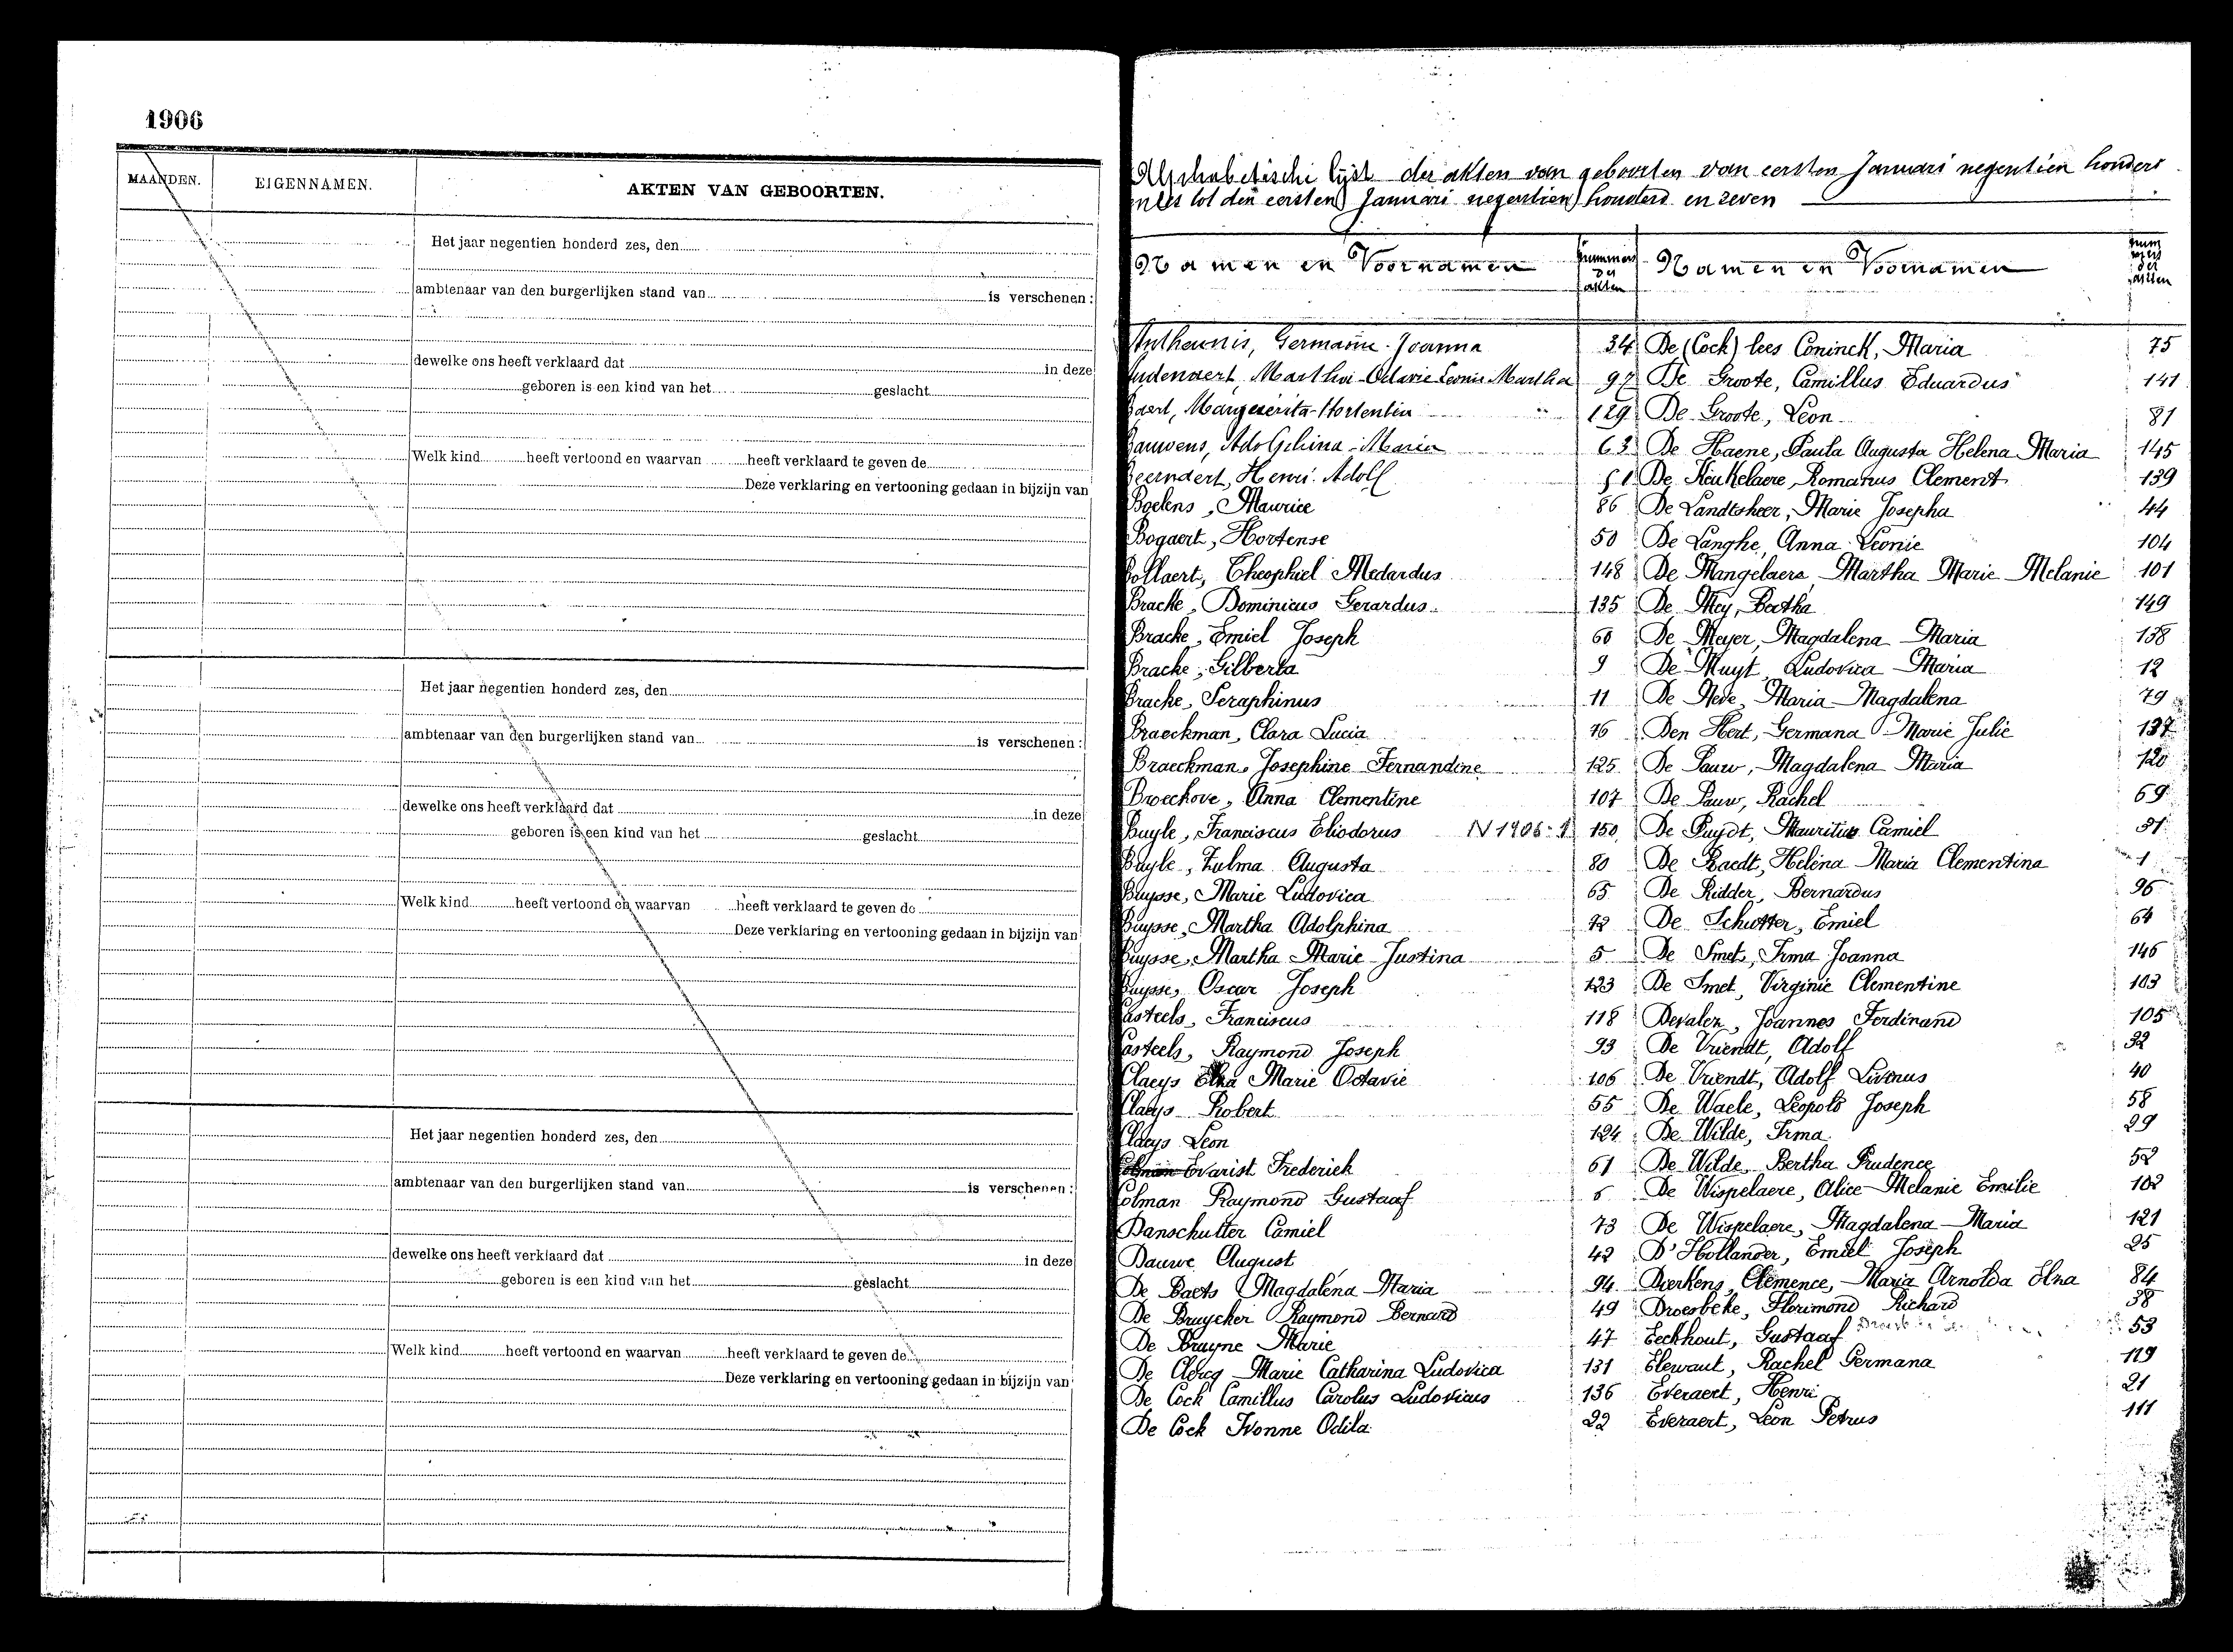 1906
MAANDEN.
EIGENNAMEN.
AKTEN VAN GEBOORTEN.
Het jaar negentien honderd zes, den
ambtenaar van den burgerlijken stand van is verschenen:
dewelke ons heeft verklaard dat in deze
geboren is een kind van het geslacht
Welk kind heeft vertoond en waarvan heeft verklaard te geven de
Deze verklaring en vertooning gedaan in bijzijn van
Het jaar negentien honderd zes, den
ambtenaar van den burgerlijken stand van is verschenen:
dewelke ons heeft verklaard dat in deze
geboren is een kind van het geslacht
Welk kind heeft vertoond en waarvan heeft verklaard te geven de
Deze verklaring en vertooning gedaan in bijzijn van
Het jaar negentien honderd zes, den
ambtenaar van den burgerlijken stand van is verschenen:
dewelke ons heeft verklaard dat in deze
geboren is een kind van het geslacht
Welk kind heeft vertoond en waarvan heeft verklaard te geven de
Deze verklaring en vertooning gedaan in bijzijn van
Alphabetische lijst der akten van geboorten van eersten Januari negentien honderd
tot den eersten Januari negentien honderd en zeven
Namen en Voornamen
nummers der akten
Antheunis, Germaine Joanna 34
Martha Octavie Leonie Martha 97
Baert, Margueritta-Hortentia 129
Bauwens, Adolphina-Maria 63
Beerndert, Henri Adolf 51
Boelens, Maurice 86
Bogaert, Hortense 50
Bollaert, Theophiel Medardus 148
Bracke, Dominicus Gerardus 135
Bracke, Emiel Joseph 60
Bracke, Gilberta 9
Bracke, Seraphinus 11
Braeckman, Clara Lucia 76
Braeckman, Josephine Fernandine 125
Broeckove, Anna Clementine 107
Buyle, Franciscus Eliodorus N 1906: 1 150
Buyle, Zulma Augusta 80
Buysse, Marie Ludovica 65
Buysse, Martha Adolphina 72
Buysse, Martha Marie Justina 5
Buysse, Oscar Joseph 123
Casteels, Franciscus 118
Casteels, Raymond Joseph 93
Claeys Elza Marie Octavie 106
Claeys Robert 55
Claeys Leon 124
Colman Evarist Frederick 61
Colman Raymond Gustaaf 6
Danschutter Camiel 73
Dauwe August 42
De Baets Magdalena Maria 94
De Bruycker Raymond Bernard 49
De Bruyne Marie 47
De Clercq Marie Catharina Ludovica 131
De Cock Camillus Carolus Ludovicus 136
De Cock Ivonne Odila 22
Namen en Voornamen
nummers der akten
De (Cock) lees Coninck, Maria 75
De Groote, Camillus Eduardus 141
De Groote, Leon 81
De Haene, Paula Augusta Helena Maria 145
De Keukelaere, Romanus Clement 139
De Landtsheer, Marie Josepha 44
De Langhe, Anna Leonie 104
De Mangelaere, Martha Marie Melanie 101
De Mey, Bertha 149
De Meyer, Magdalena Maria 138
De Muyt, Ludovica Maria 12
De Neve, Maria Magdalena 79
Den Hert, Germana Marie Julie 137
De Pauw, Magdalena Maria 120
De Pauw, Rachel 69
De Puydt, Mauritius Camiel 91
De Raedt, Helena Maria Clementina 1
De Ridder, Bernardus 96
De Schutter, Emiel 64
De Smet, Irma Joanna 146
De Smet, Virginie Clementine 103
Devalez, Joannes Ferdinand 105
De Vriendt, Adolf 32
De Vriendt, Adolf Livinus 40
De Waele, Leopold Joseph 58
De Wilde, Irma 29
De Wilde, Bertha Prudence 52
De Wispelaere, Alice Melanie Emilie 102
De Wispelaere, Magdalena Maria 121
D'Hollander, Emiel Joseph 25
Dierkens, Clemence, Maria Arnolda Elna 84
Droesbeke, Florimond Richard 38
Eeckhout, Gustaaf 53
Elewaut, Rachel Germana 119
Everaert, Henri 21
Everaert, Leon Petrus 111